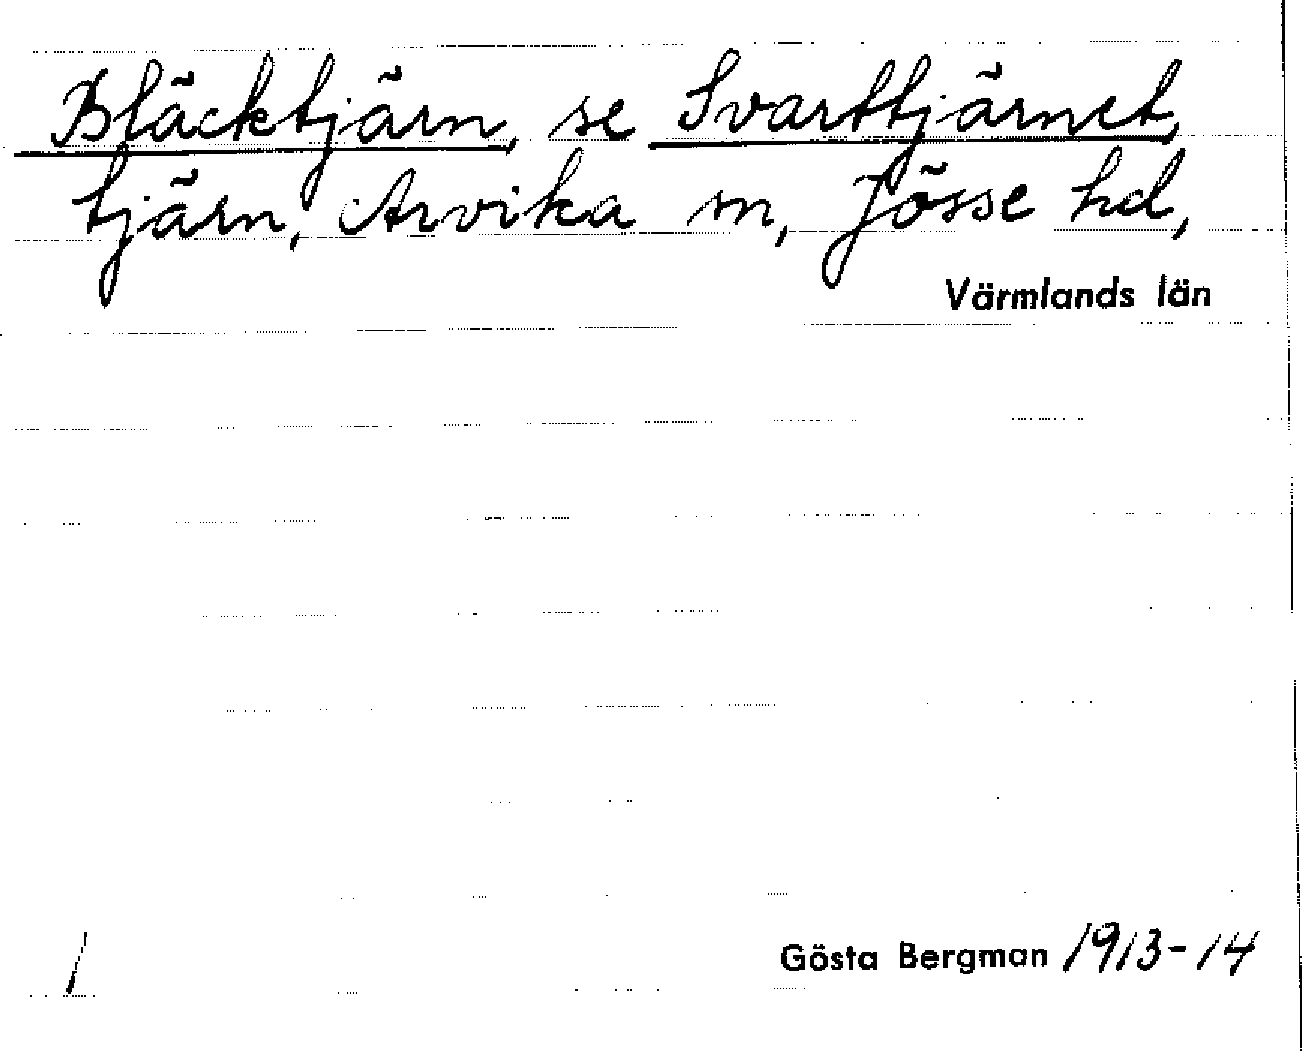 Bläcktjärn, se Svarttjärnet,
tjärn, Arvika sn, Jösse hd,
Värmlands län
Gösta Bergman 1913-14
1